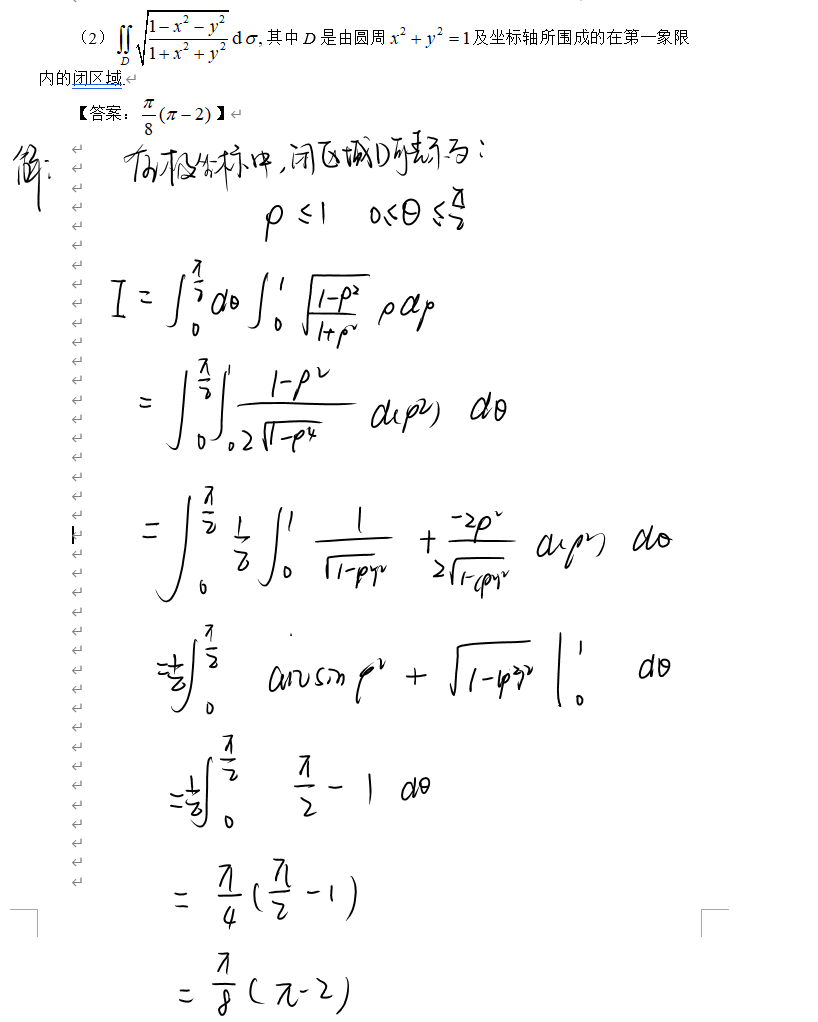 (2) ∬_D √((1-x²-y²)/(1+x²+y²)) dσ, 其中 D 是由圆周 x²+y²=1 及坐标轴所围成的在第一象限
内的闭区域.
【答案: π/8 (π-2) 】
解: 在极坐标中, 闭区域D可表示为:
ρ ≤ 1 0 ≤ θ ≤ π/2
I = ∫_0^{π/2} dθ ∫_0^1 √((1-ρ²)/(1+ρ²)) ρ dρ
= ∫_0^{π/2} ∫_0^1 (1-ρ²)/(2√(1-ρ⁴)) d(ρ²) dθ
= ∫_0^{π/2} 1/2 ∫_0^1 1/√(1-(ρ²)²) + (-2ρ²)/(2√(1-(ρ²)²)) d(ρ²) dθ
= 1/2 ∫_0^{π/2} arcsin ρ² + √(1-(ρ²)²) |_0^1 dθ
= 1/2 ∫_0^{π/2} π/2 - 1 dθ
= π/4 (π/2 - 1)
= π/8 (π-2)